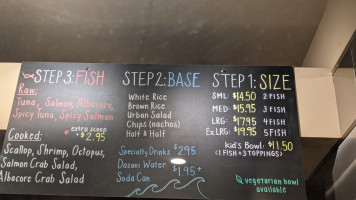 STEP 3: FISH
Raw:
Tuna, Salmon, Albacore,
Spicy Tuna, Spicy Salmon
* extra scoop
+ $2.95
Cooked:
Scallop, Shrimp, Octopus,
Salmon Crab Salad,
Albacore Crab Salad
STEP 2: BASE
White Rice
Brown Rice
Urban Salad
Chips (nachos)
Half & Half
Specialty Drinks $2.95
Dasani Water
Soda Can $1.95+
STEP 1: SIZE
SML: $14.50 2 FISH
MED: $15.95 3 FISH
LRG: $17.95 4 FISH
Ex.LRG: $19.95 5 FISH
kid's Bowl: $11.50
(1 FISH + 3 TOPPINGS)
vegetarian bowl
available